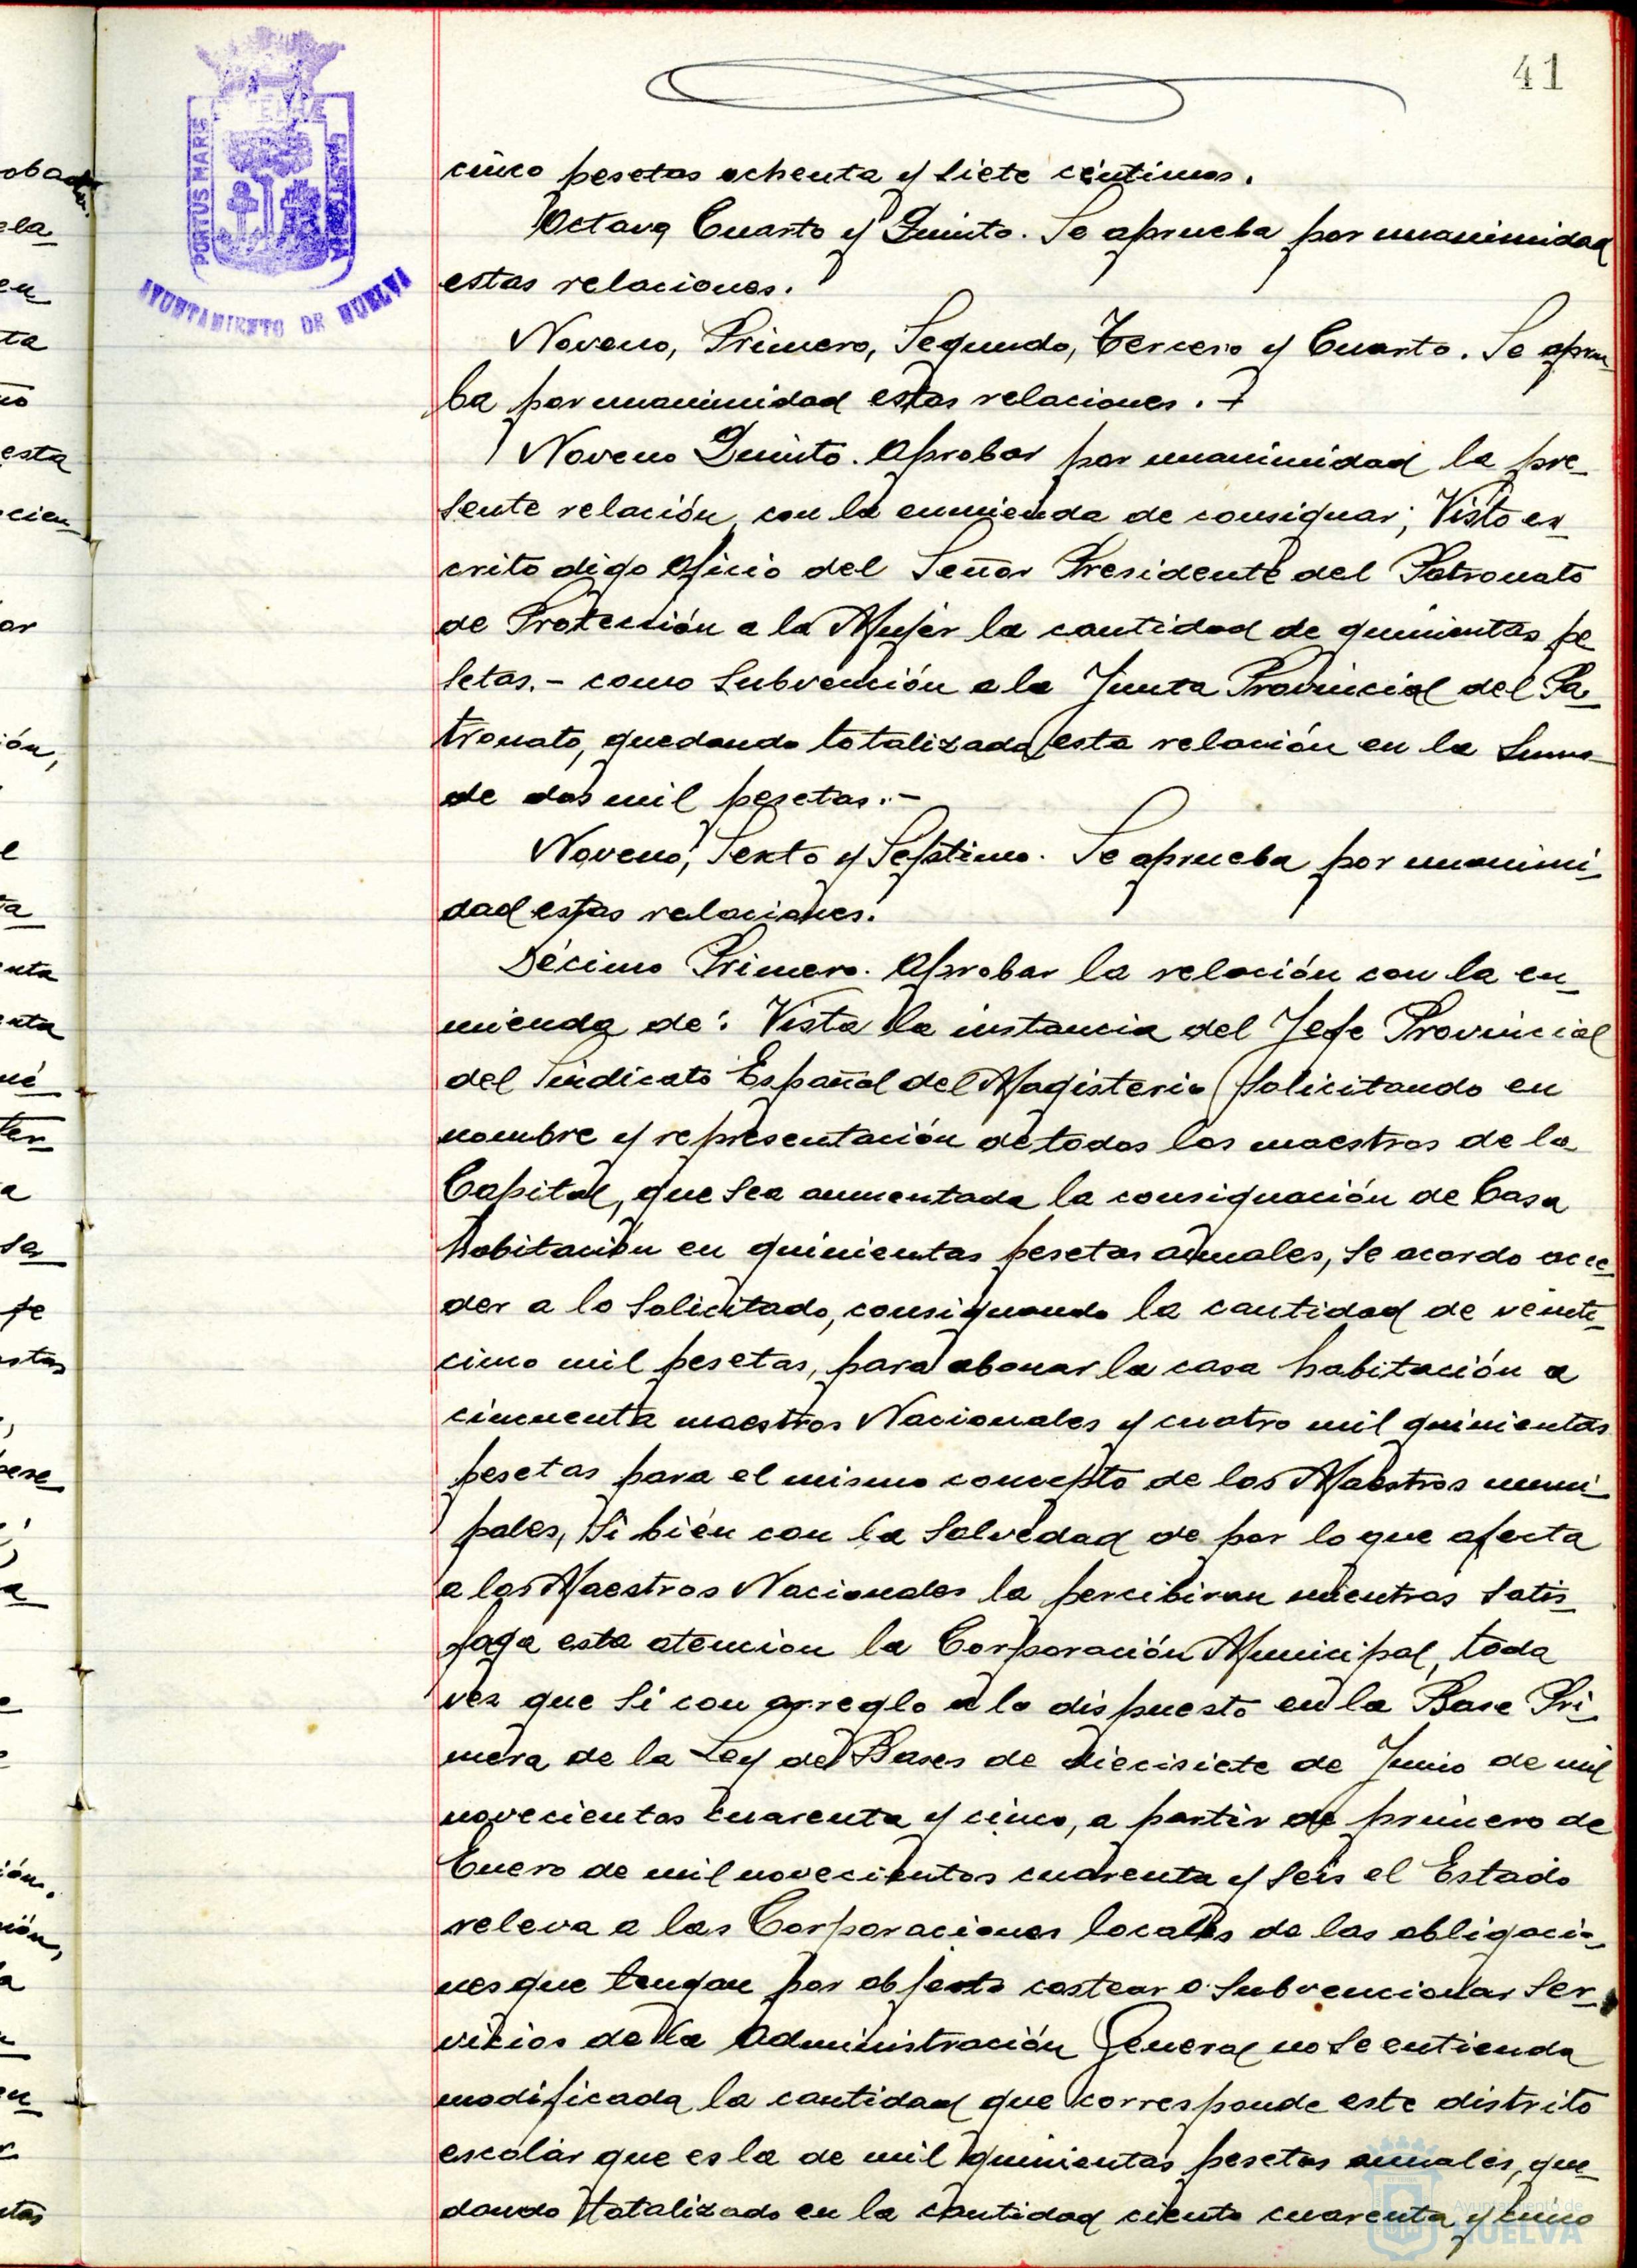 41
PORTUS MARIS
AYUNTAMIENTO DE HUELVA
cinco pesetas ochenta y siete céntimos.
Octavo Cuarto y Quinto. Se aprueba por unanimidad
estas relaciones.
Noveno, Primero, Segundo, Tercero y Cuarto. Se aprue
ba por unanimidad estas relaciones.
Noveno Quinto. Aprobar por unanimidad la pre-
sente relación, con la enmienda de consignar; Visto es
crito digo oficio del Señor Presidente del Patronato
de Protección a la Mujer la cantidad de quinientas pe
setas.- como Subvención a la Junta Provincial del Pa-
tronato, quedando totalizada esta relación en la Suma
de dos mil pesetas.-
Noveno, Sexto y Séptimo. Se aprueba por unanimi-
dad estas relaciones.
Décimo Primero. Aprobar la relación con la en-
mienda de: Vista la instancia del Jefe Provincial
del Sindicato Español del Magisterio solicitando en
nombre y representación de todos los maestros de la
Capital, que sea aumentada la consignación de Casa
habitación en quinientas pesetas anuales, se acordo acce-
der a lo Solicitado, consignando la cantidad de veinti-
cinco mil pesetas, para abonar la casa habitación a
cincuenta maestros Nacionales y cuatro mil quinientas
pesetas para el mismo concepto de los Maestros muni-
pales, Si bién con la Salvedad de por lo que afecta
a los Maestros Nacionales la percibiran mientras Satis-
faga esta atencion la Corporación Municipal, toda
vez que Si con arreglo a lo dispuesto en la Base Pri-
mera de la Ley de Bases de diecisiete de Junio de mil
novecientos cuarenta y cinco, a partir de primero de
Enero de mil novecientos cuarenta y seis el Estado
releva a las Corporaciones locales de las obligacio-
nes que tengan por objeto costear o Subvencionar Ser-
vicios de la Administración General no Se entienda
modificada la cantidad que corresponde este distrito
escolar que es la de mil quinientas pesetas anuales, que-
dando totalizado en la cantidad ciento cuarenta y cinco
Ayuntamiento de
HUELVA